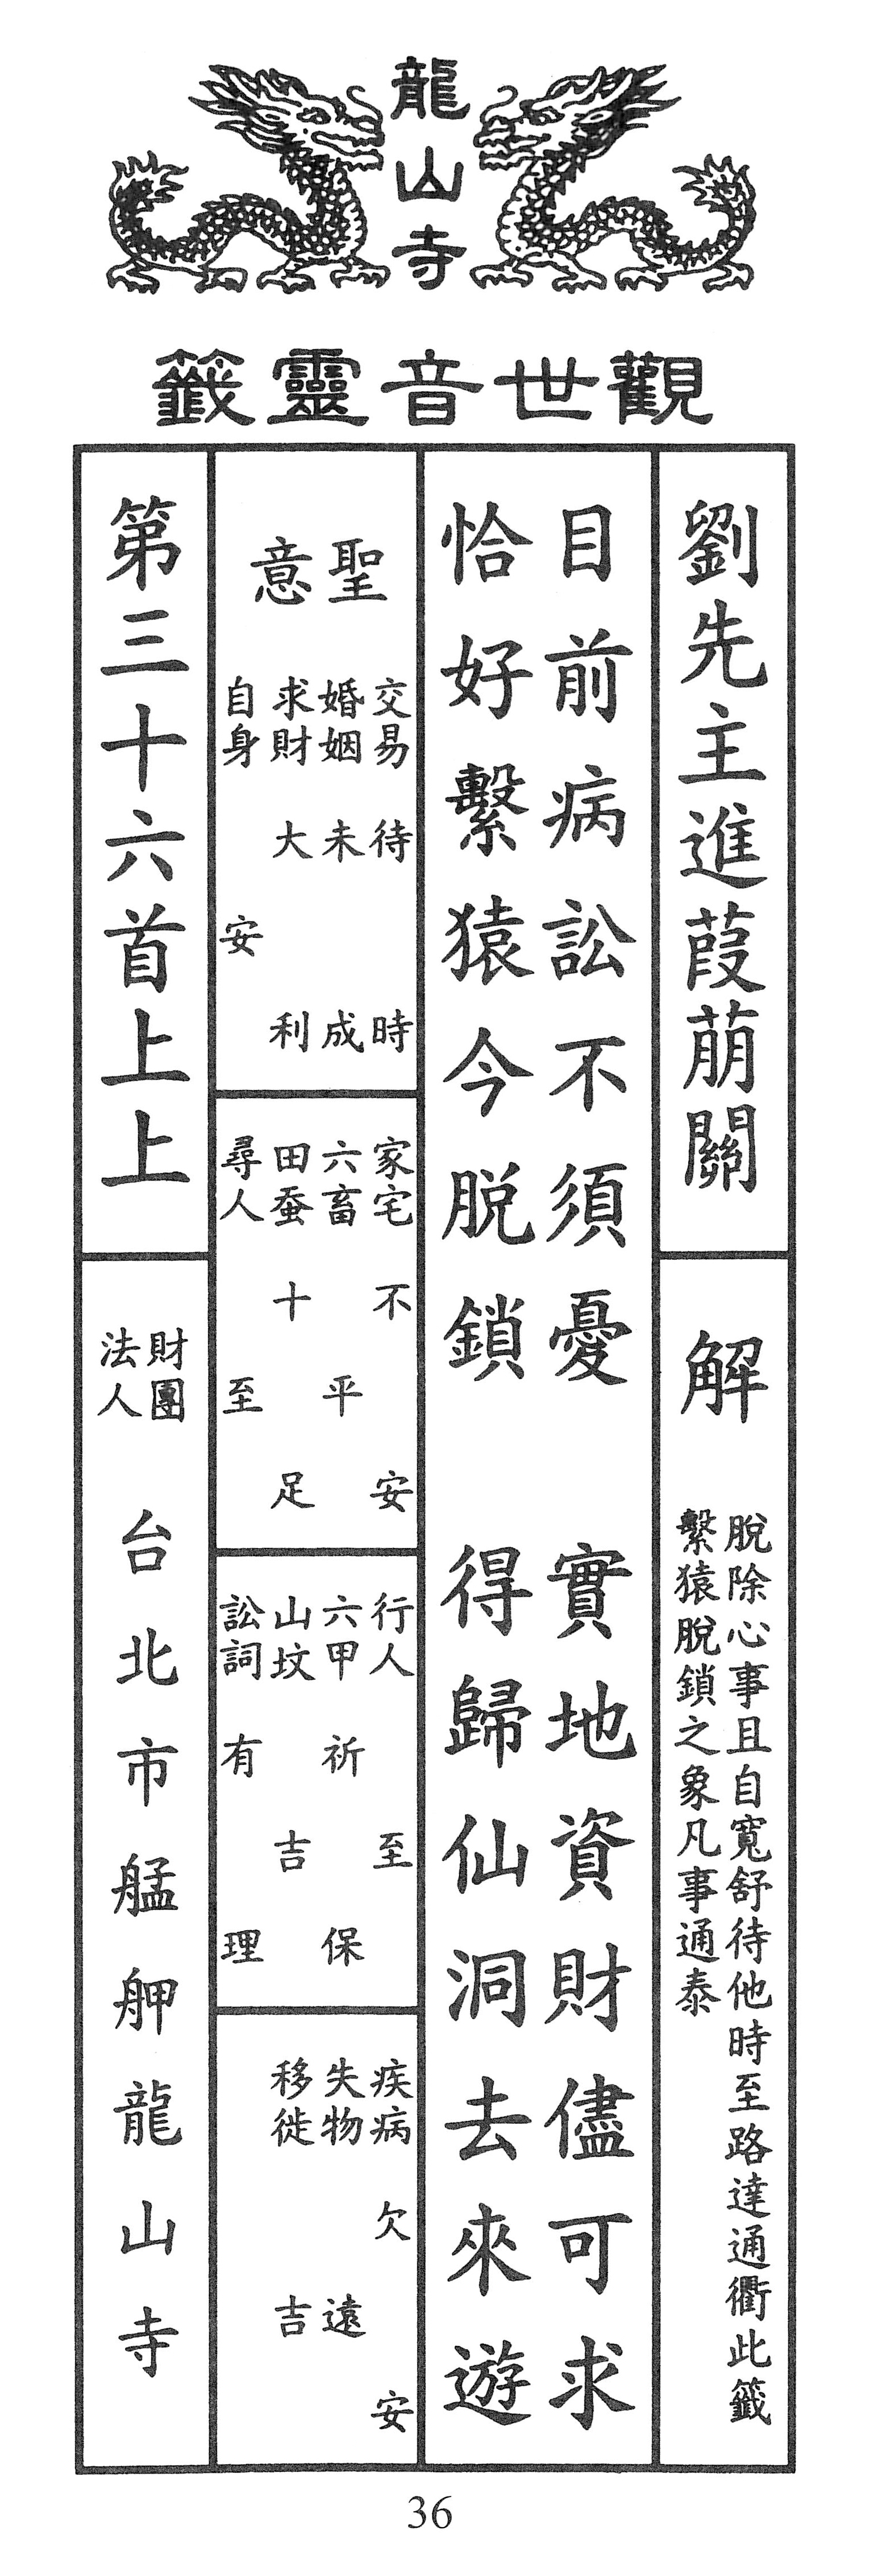 龍山寺
觀世音靈籤
劉先主進葭萠關
解
脫除心事且自寬舒待他時至路達通衢此籤
繫猿脫鎖之象凡事通泰
目前病訟不須憂 實地資財儘可求
恰好繫猿今脫鎖 得歸仙洞去來遊
聖意
交易待時
婚姻未成
求財大利
自身安
家宅不安
六畜平
田蚕十足
尋人至
行人至
六甲祈保
山坟吉
訟詞有理
疾病欠安
失物遠
移徙吉
第三十六首上上
財團法人
台北市艋舺龍山寺
36